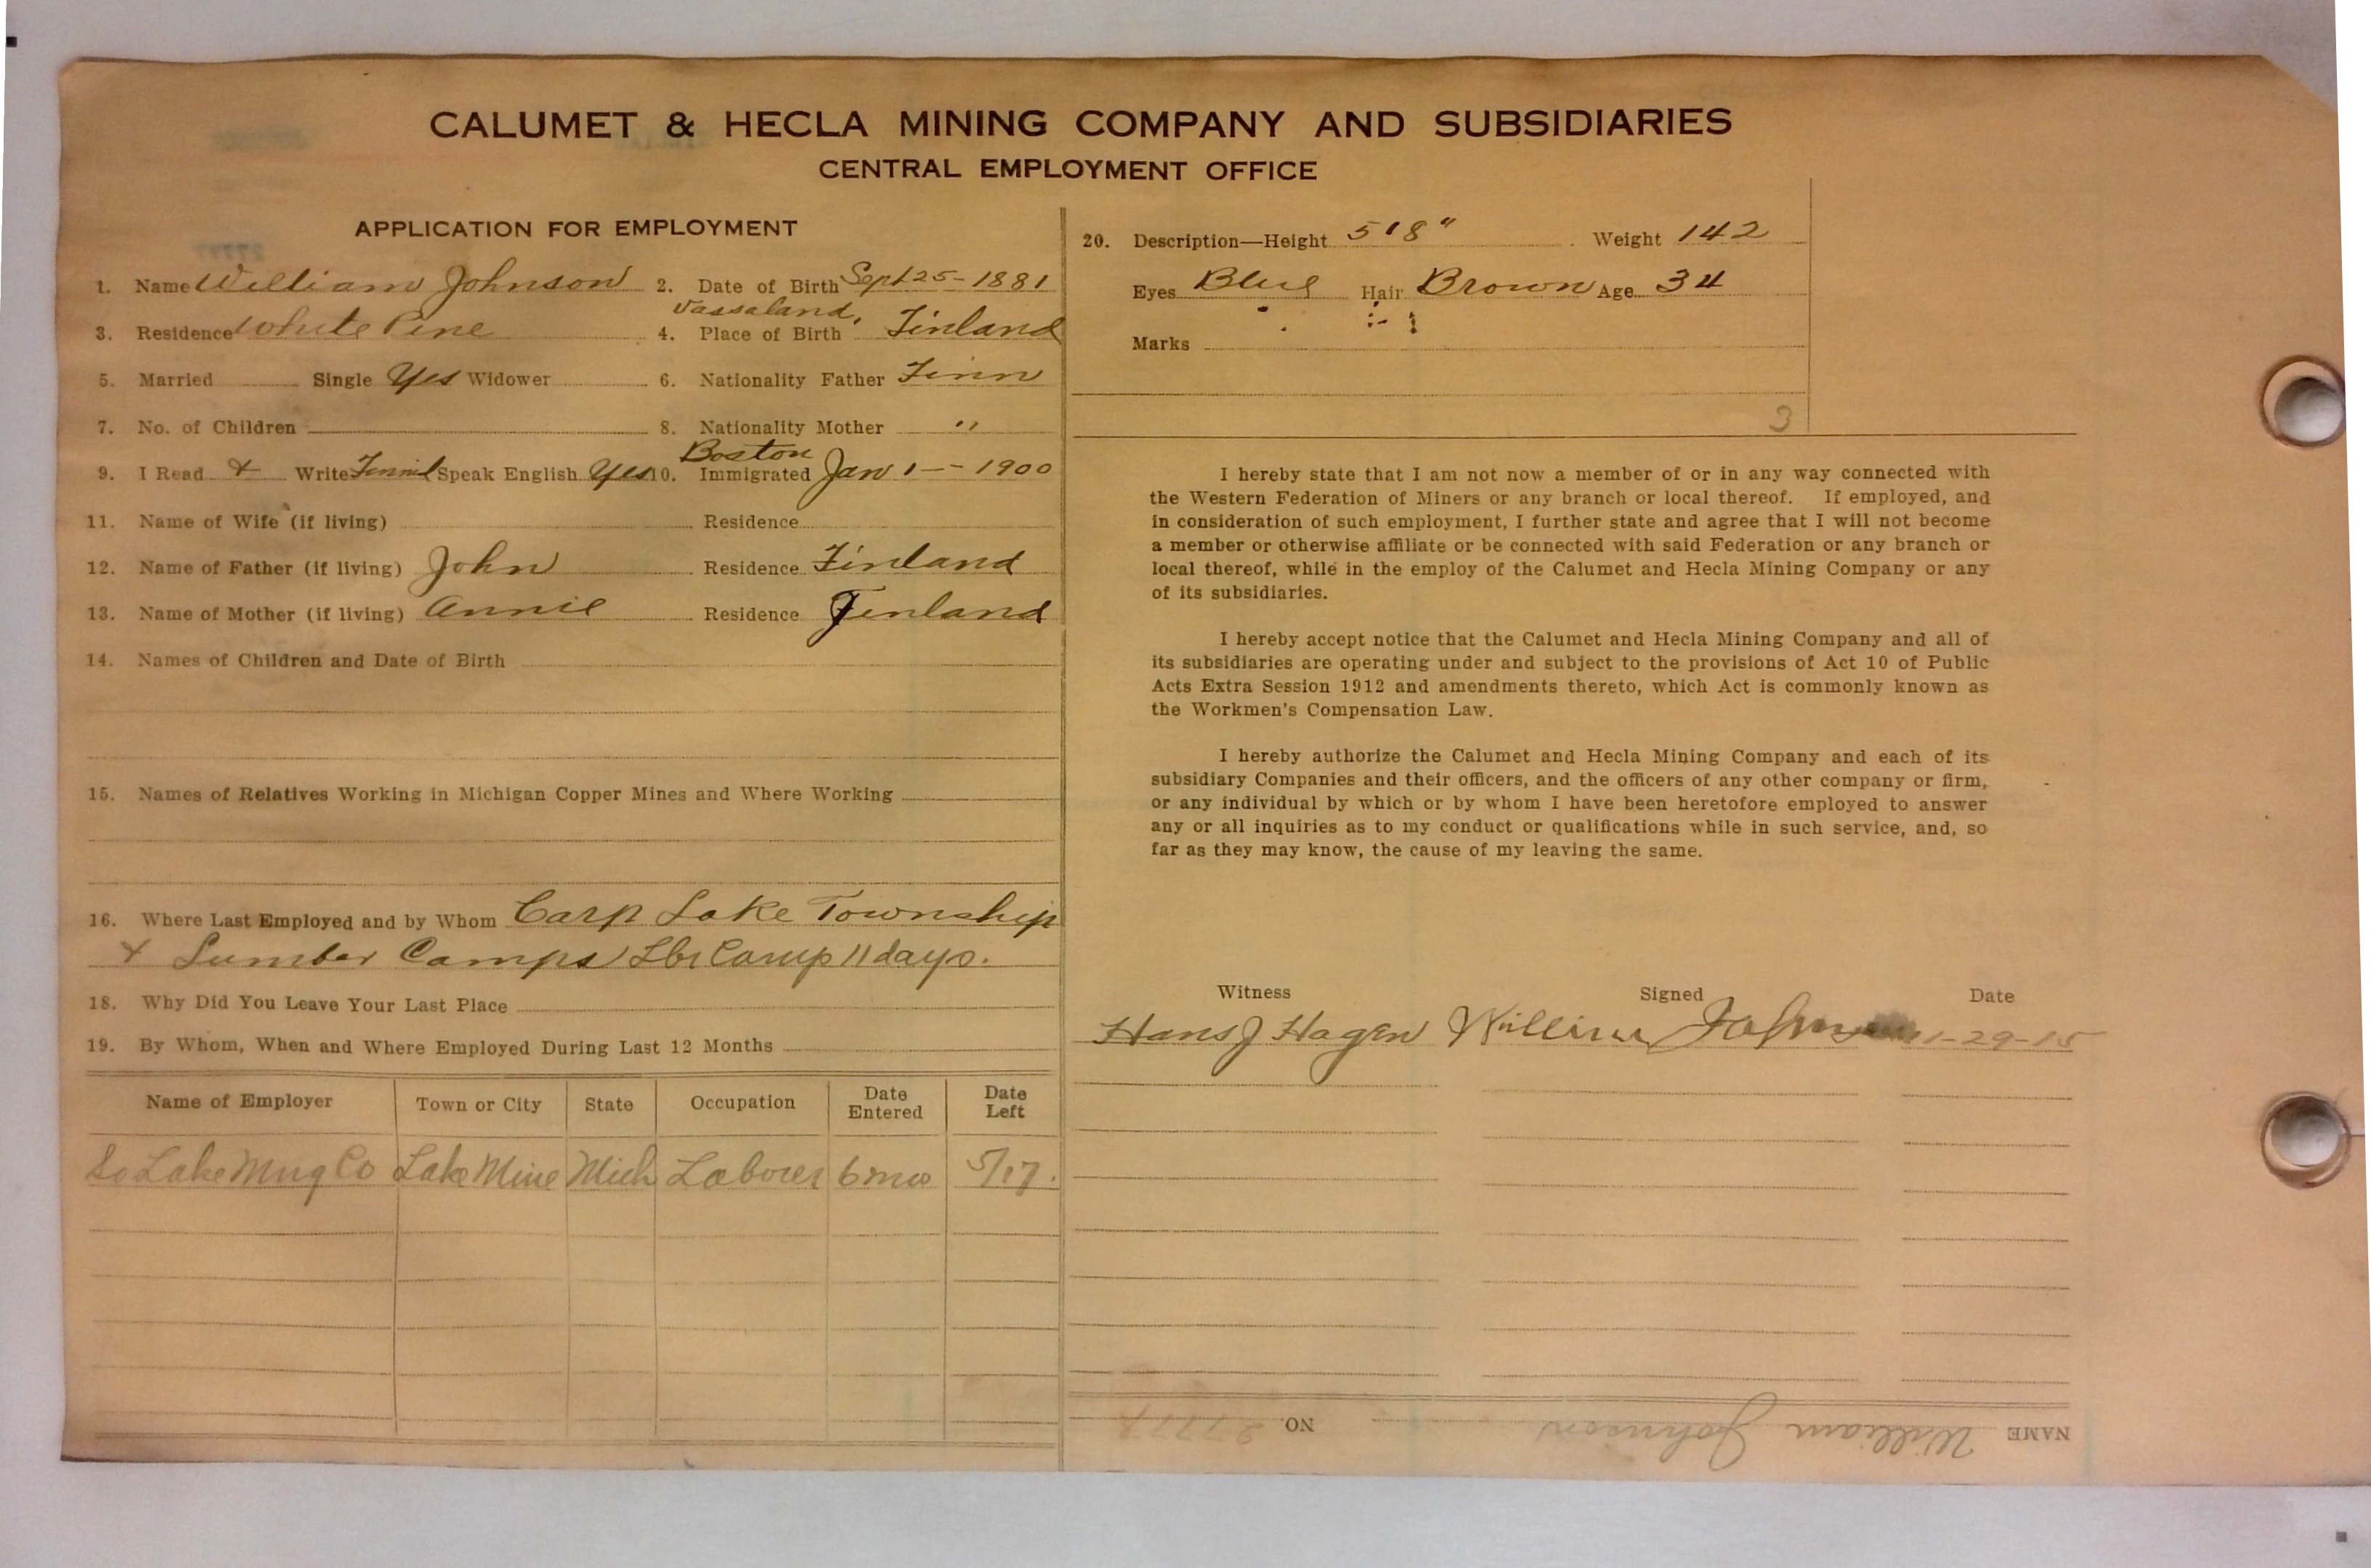 CALUMET & HECLA MINING COMPANY AND SUBSIDIARIES
CENTRAL EMPLOYMENT OFFICE
APPLICATION FOR EMPLOYMENT
1. Name William Johnson 2. Date of Birth Sept 25-1881
Vassaland,
3. Residence White Pine 4. Place of Birth Finland
5. Married Single Yes Widower 6. Nationality Father Finn
7. No. of Children 8. Nationality Mother "
Boston
9. I Read & Write Finnish Speak English Yes 10. Immigrated Jan 1-- 1900
11. Name of Wife (if living) Residence
12. Name of Father (if living) John Residence Finland
13. Name of Mother (if living) Annie Residence Finland
14. Names of Children and Date of Birth
15. Names of Relatives Working in Michigan Copper Mines and Where Working
16. Where Last Employed and by Whom Carp Lake Township
& Lumber Camps Lbr Camp 11 days.
18. Why Did You Leave Your Last Place
19. By Whom, When and Where Employed During Last 12 Months
Name of Employer Town or City State Occupation Date Entered Date Left
So Lake Mng Co Lake Mine Mich Laborer 6 mo 5/17.
20. Description—Height 5'8" Weight 142
Eyes Blue Hair Brown Age 34
Marks
3
I hereby state that I am not now a member of or in any way connected with
the Western Federation of Miners or any branch or local thereof. If employed, and
in consideration of such employment, I further state and agree that I will not become
a member or otherwise affiliate or be connected with said Federation or any branch or
local thereof, while in the employ of the Calumet and Hecla Mining Company or any
of its subsidiaries.
I hereby accept notice that the Calumet and Hecla Mining Company and all of
its subsidiaries are operating under and subject to the provisions of Act 10 of Public
Acts Extra Session 1912 and amendments thereto, which Act is commonly known as
the Workmen's Compensation Law.
I hereby authorize the Calumet and Hecla Mining Company and each of its
subsidiary Companies and their officers, and the officers of any other company or firm,
or any individual by which or by whom I have been heretofore employed to answer
any or all inquiries as to my conduct or qualifications while in such service, and, so
far as they may know, the cause of my leaving the same.
Witness Signed Date
Hans J Hagen William Johnson 11-29-15
NAME William Johnson NO.